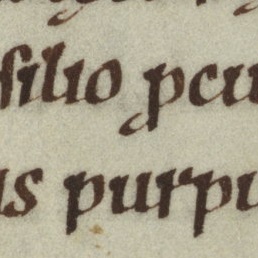 silio ꝓcu
is purpu